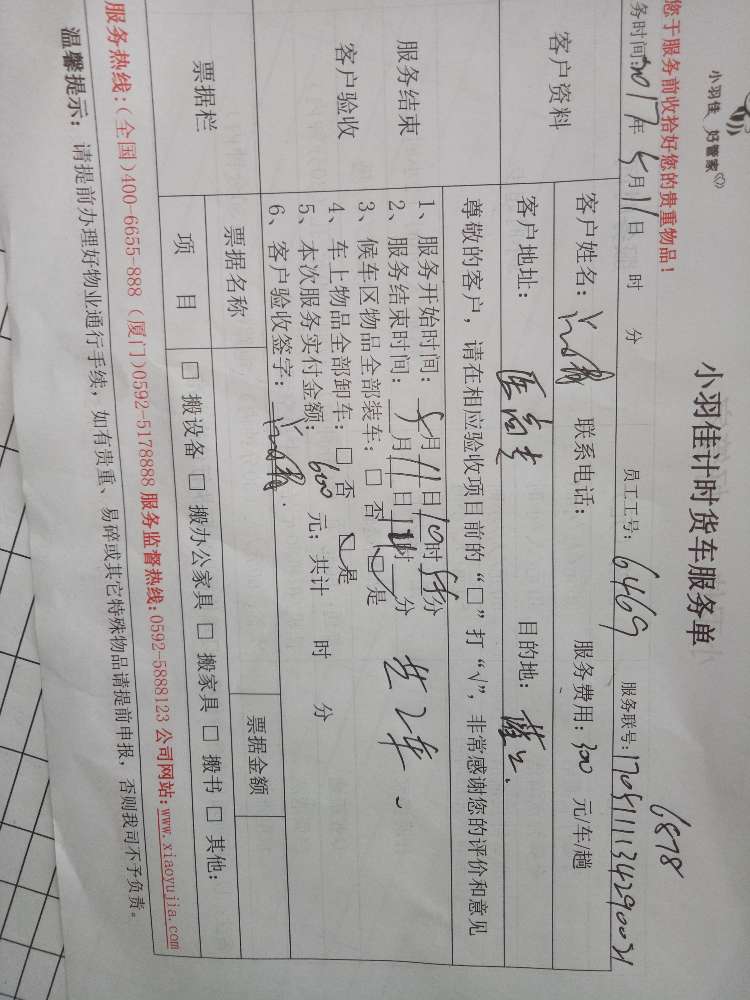 小羽佳 好管家
小羽佳计时货车服务单
您于服务前收拾好您的贵重物品！
6878
务时间:2017年5月11日 时 分 员工工号: 6469 服务联号:
客户资料
客户姓名: 联系电话: 服务费用: 300 元/车/趟
客户地址: 目的地:
服务结束
客户验收
尊敬的客户，请在相应验收项目前的“□”打“√”，非常感谢您的评价和意见
1、服务开始时间: 5月11日10时55分
2、服务结束时间: 月11日12时 分
3、候车区物品全部装车: □ 否 □是
4、车上物品全部卸车: □ 否 □是
共2车
5、本次服务实付金额: 600 元; 共计 时 分
6、客户验收签字:
票据栏
票据名称 票据金额
项 目 □ 搬设备 □ 搬办公家具 □ 搬家具 □ 搬书 □ 其他:
服务热线:(全国)400-6655-888 (厦门)0592-5178888 服务监督热线:0592-5888123 公司网站:www.xiaoyujia.com
温馨提示: 请提前办理好物业通行手续，如有贵重、易碎或其它特殊物品请提前申报，否则我司不予负责。